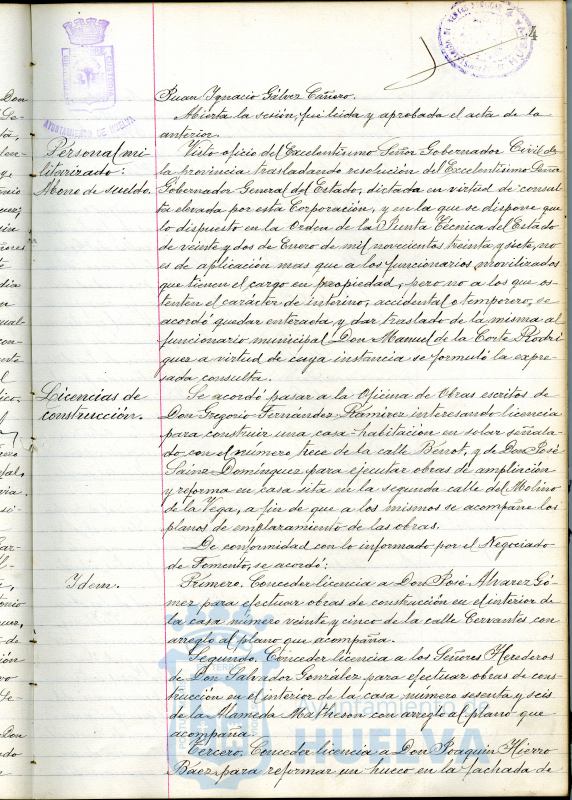 4
AYUNTAMIENTO DE HUELVA
Juan Ignacio Gálvez Cañero.
Abierta la sesión, fué leida y aprobada el acta de la
anterior.
Personal mi
litarizado:
Abono de sueldo.
Visto oficio del Excelentísimo Señor Gobernador Civil de
la provincia trasladando resolución del Excelentísimo Señor
Gobernador General del Estado, dictada en virtud de consul
ta elevada por esta Corporación, y en la que se dispone que
lo dispuesto en la Orden de la Junta Técnica del Estado
de veinte y dos de Enero de mil novecientos treinta y siete, no
es de aplicación mas que a los funcionarios movilizados
que tienen el cargo en propiedad, pero no a los que os-
tenten el carácter de interino, accidental o temporero, se
acordó quedar enterada, y dar traslado de la misma al
funcionario municipal Don Manuel de la Corte Rodri
guez a virtud de cuya instancia se formuló la expre-
sada consulta.
Licencias de
construcción.
Se acordó pasar a la Oficina de Obras escritos de
Don Gregorio Fernández Ramirez interesando licencia
para construir una casa-habitación en solar señala-
do con el numero trece de la calle Bénot, y de Don José
Sáinz Domínguez para ejecutar obras de ampliación
y reforma en casa sita en la segunda calle del Molino
de la Vega, a fin de que a los mismos se acompañe los
planos de emplazamiento de las obras.
De conformidad con lo informado por el Negociado
de Fomento, se acordó:
Idem.
Primero. Conceder licencia a Don José Alvarez Gó-
mez para efectuar obras de construcción en el interior de
la casa número veinte y cinco de la calle Cervantes con
arreglo al plano que acompaña.
Segundo. Conceder licencia a los Señores Herederos
de Don Salvador Gonzalez para efectuar obras de cons-
trucción en el interior de la casa número sesenta y seis
de la Alameda Matheson con arreglo al plano que
acompaña.
Tercero. Conceder licencia a Don Joaquin Hierro
Báez para reformar un hueco en la fachada de
Ayuntamiento de
HUELVA